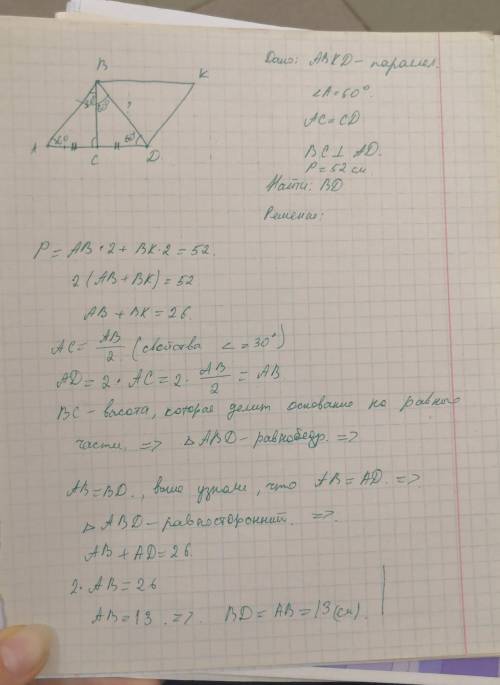 B
K
30°
60°
?
60°
60°
A
C
D
Дано: ABKD - паралел.
∠A = 60°.
AC = CD
BC ⊥ AD.
P = 52 см
Найти: BD
Решение:
P = AB · 2 + BK · 2 = 52.
2 (AB + BK) = 52
AB + BK = 26.
AC = AB/2 (свойства ∠ = 30°)
AD = 2 · AC = 2 · AB/2 = AB.
BC - высота, которая делит основание на равные
части. => △ABD - равнобедр. =>
AB = BD., выше узнали, что AB = AD. =>
△ABD - равносторонний. =>.
AB + AD = 26.
2 · AB = 26
AB = 13. =>. BD = AB = 13 (см).